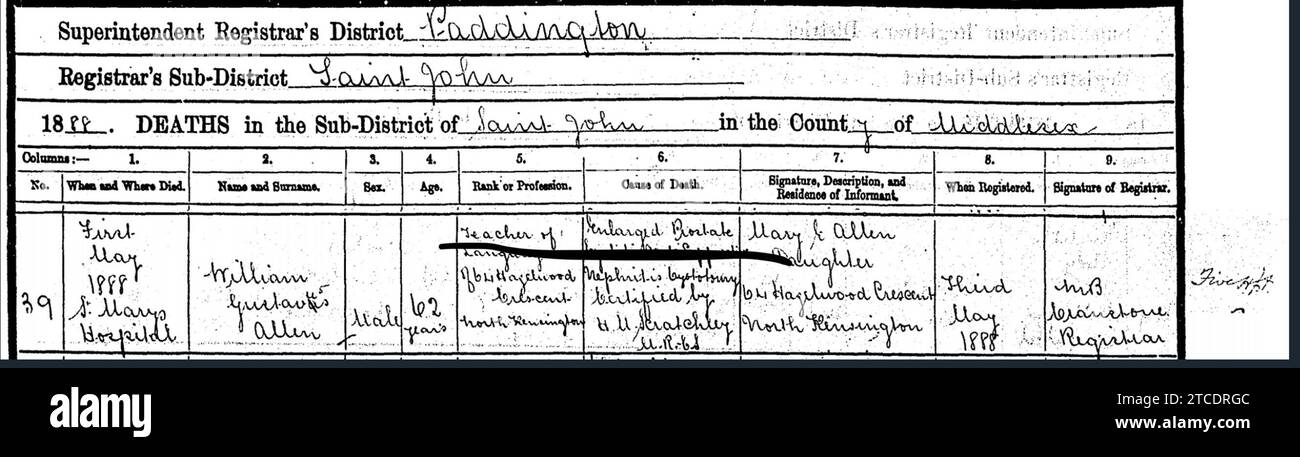 Superintendent Registrar's District Paddington
Registrar's Sub-District Saint John
1888. DEATHS in the Sub-District of Saint John in the County of Middlesex
Columns:— 1. 2. 3. 4. 5. 6. 7. 8. 9.
No. When and Where Died. Name and Surname. Sex. Age. Rank or Profession. Cause of Death. Signature, Description, and Residence of Informant. When Registered. Signature of Registrar.
39
First
May
1888
St Marys
Hospital
William
Gustavus
Allen
Male
62
years
Teacher of
Of 64 Hazelwood
Crescent
North Kensington
Enlarged Prostate
Nephritis Cystotomy
Certified by
H. M. Scratchley
M.R.C.S
Mary E Allen
Daughter
64 Hazelwood Crescent
North Kensington
Third
May
1888
MB
Cranstone
Registrar
alamy
Image ID: 2TCDRGC
www.alamy.com